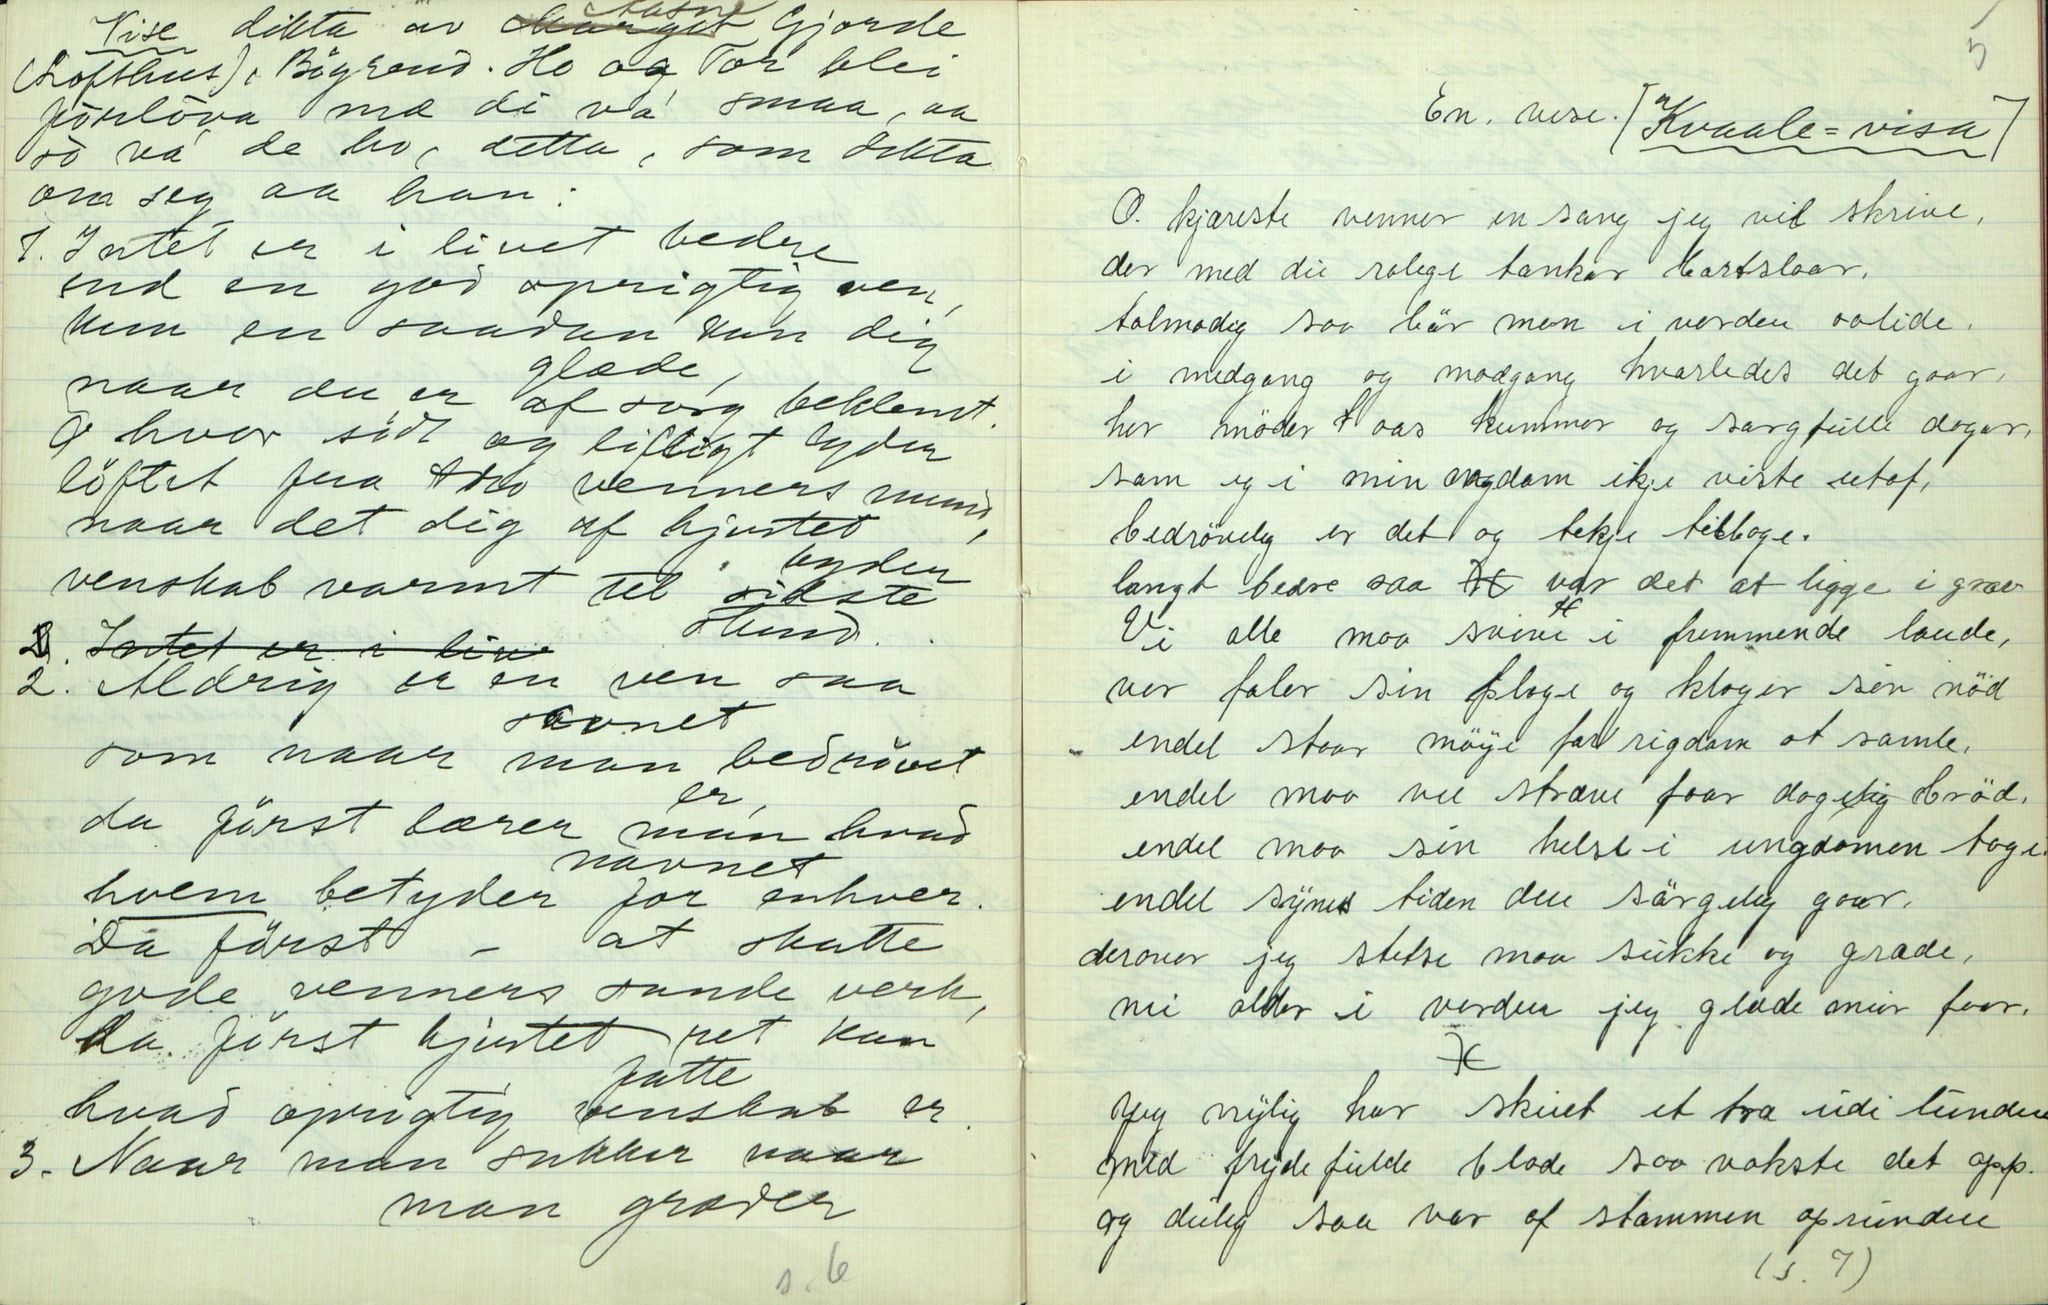 Vise dikta av Aasne Gjorde
(Lofthus), Bøgrend. Ho og Tor blei
förlöva mæ di va' smaa, aa
so va' de ho, detta, som dikta
om seg aa han:
1. Intet er i livet bedre
end en god oprigtig ven,
kun en saadan kan dig
glæde,
naar du er af sorg beklemt.
O hvor södt og lifligt lyder
löftet fra tro venners mund,
naar det dig af hjertet
byder
venskab varmt til sidste
stund.
Intet er i live
2. Aldrig er en ven saa
savnet
som naar man bedrövet
er,
da först lærer man hvad
navnet
hvem betyder for enhver.
Da först – at skatte
gode venners sande verk,
da först hjertet ret kan
fatte
hvad oprigtig venskab er.
3. Naar man sukker naar
man græder
s. 6
5
En. vise. [Kvaale=visa]
O. kjæreste venner en sang jeg vil skrive,
der med die rolige tanker bortslaar,
talmodig saa bär men i verden
i medgang og modgang hvorledes det gaar,
her möder oss kummer og sorgfulle dager,
som eg i min ungdom ikje viste utaf,
bedrövelig er det og tekje tilbage.
langt bedre saa var det at ligge i grav
Vi alle maa svive i fremmende lande,
ver føler sin plage og klager sin nöd
endel staar möye for rigdom at samle,
endel maa vel stræve foor dagelig bröd.
endel maa sin helse i ungdomen tage.
endel synes tiden den sörgelig gaar,
derover jeg stetse maa sukke og græde,
ni alder i verden jeg glæde mier faar.
Jeg nylig har skuet et træ udi lunden
med frydefulde blade saa vokste det opp.
og deilig saa var af stammen oprunden
(s. 7)